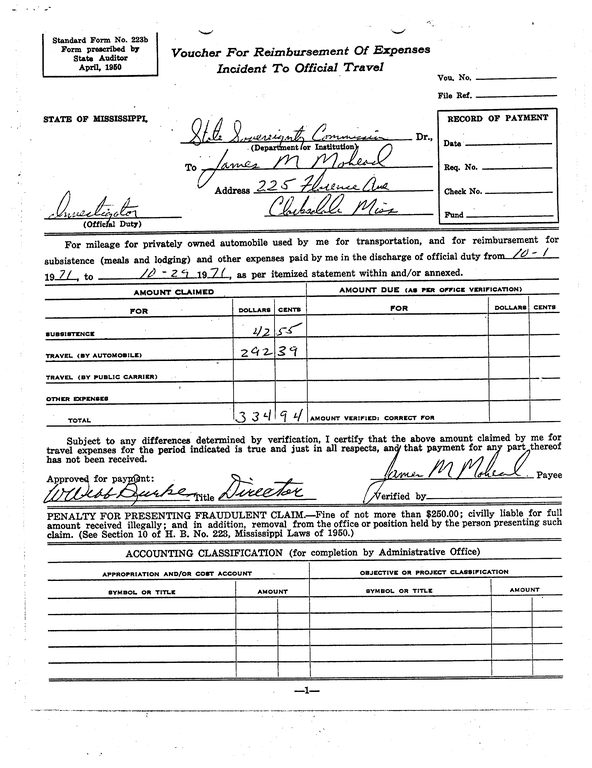 Standard Form No. 223b
Form prescribed by
State Auditor
April, 1950
Voucher For Reimbursement Of Expenses
Incident To Official Travel
Vou. No.
File Ref.
STATE OF MISSISSIPPI,
State Sovereignty Commission Dr.,
(Department or Institution)
To James M Mohead
Address 225 Florence Ave
Clarksdale Miss
Investigator
(Official Duty)
RECORD OF PAYMENT
Date
Req. No.
Check No.
Fund
For mileage for privately owned automobile used by me for transportation, and for reimbursement for
subsistence (meals and lodging) and other expenses paid by me in the discharge of official duty from 10-1
1971, to 10-29 1971, as per itemized statement within and/or annexed.
AMOUNT CLAIMED
AMOUNT DUE (AS PER OFFICE VERIFICATION)
FOR DOLLARS CENTS FOR DOLLARS CENTS
SUBSISTENCE 42 55
TRAVEL (BY AUTOMOBILE) 292 39
TRAVEL (BY PUBLIC CARRIER)
OTHER EXPENSES
TOTAL 334 94 AMOUNT VERIFIED: CORRECT FOR
Subject to any differences determined by verification, I certify that the above amount claimed by me for
travel expenses for the period indicated is true and just in all respects, and that payment for any part thereof
has not been received.
James M Mohead Payee
Approved for payment:
W Webb Burke Title Director
Verified by
PENALTY FOR PRESENTING FRAUDULENT CLAIM.—Fine of not more than $250.00; civilly liable for full
amount received illegally; and in addition, removal from the office or position held by the person presenting such
claim. (See Section 10 of H. B. No. 223, Mississippi Laws of 1950.)
ACCOUNTING CLASSIFICATION (for completion by Administrative Office)
APPROPRIATION AND/OR COST ACCOUNT
OBJECTIVE OR PROJECT CLASSIFICATION
SYMBOL OR TITLE AMOUNT SYMBOL OR TITLE AMOUNT
—1—